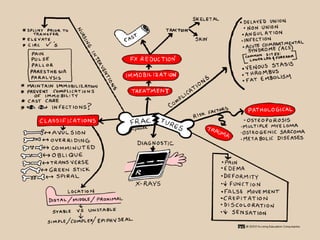 * SPLINT PRIOR TO
TRANSFER
* ELEVATE
* CIRC ✓'S
PAIN
PULSE
PALLOR
PARESTHESIA
PARALYSIS
* MAINTAIN IMMOBILIZATION
* PREVENT COMPLICATIONS
OF IMMOBILITY
* CAST CARE
INFECTIONS?
NURSING INTERVENTIONS
CAST
TRACTION
SKELETAL
SKIN
FX REDUCTION
IMMOBILIZATION
TREATMENT
COMPLICATIONS
• DELAYED UNION
• NON UNION
• ANGULATION
• INFECTION
• ACUTE COMPARTMENTAL
SYNDROME (ACS)
COMMON SITES
LOWER LEG & FOREARM
• VENOUS STASIS
• THROMBUS
• FAT EMBOLISM
RISK FACTORS
PATHOLOGICAL
• OSTEOPOROSIS
• MULTIPLE MYELOMA
• OSTEOGENIC SARCOMA
• METABOLIC DISEASES
TRAUMA
FRACTURES
CLASSIFICATIONS
AVULSION
OVERRIDING
COMMINUTED
OBLIQUE
TRANSVERSE
GREEN STICK
SPIRAL
LOCATION
DISTAL/MIDDLE/PROXIMAL
STABLE VS UNSTABLE
SIMPLE/COMPLEX/EPIPHYSEAL
DIAGNOSTIC
R
X-RAYS
• PAIN
• EDEMA
• DEFORMITY
• ↓ FUNCTION
• FALSE MOVEMENT
• CREPITATION
• DISCOLORATION
• ↓ SENSATION
©2007 Nursing Education Consultants